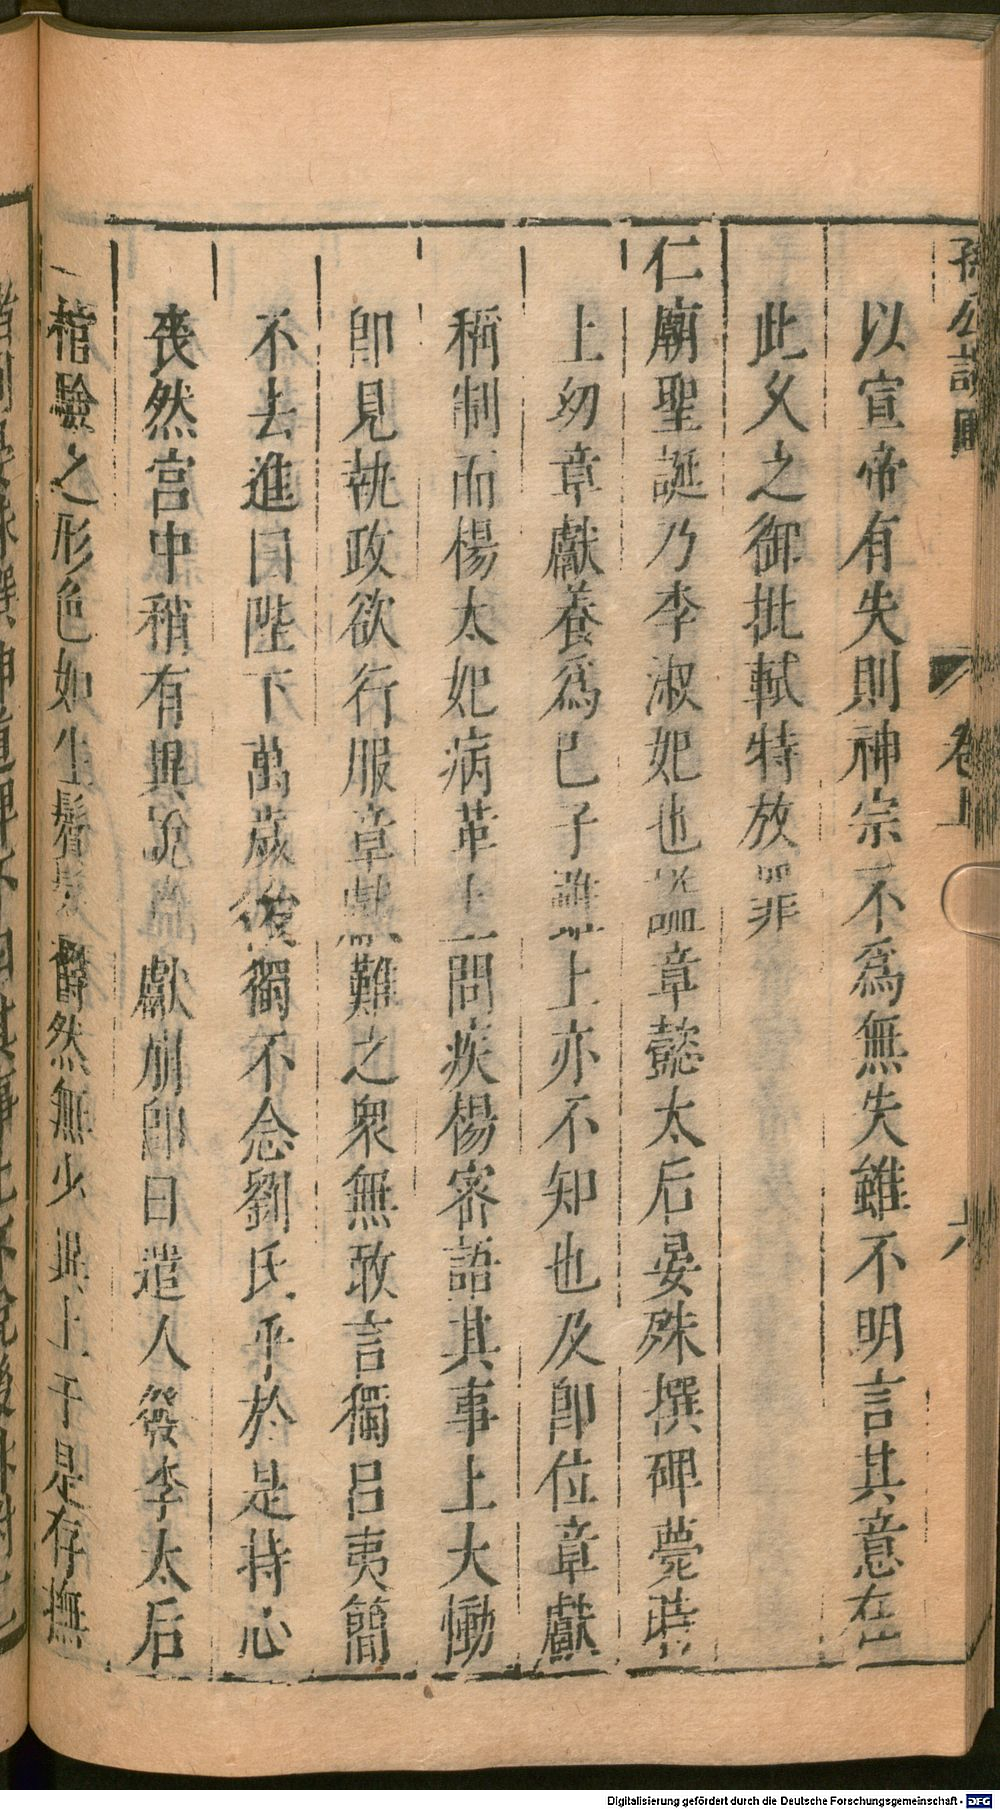 孫公談圃
卷上
六
以宣帝有失則神宗不爲無失雖不明言其意在
此父之御批軾特放罪
仁廟聖誕乃李淑妃也 章懿太后晏殊撰碑薨時
上幼章獻養爲己子 上亦不知也及卽位章獻
稱制而楊太妃病革上問疾楊密語其事上大慟
卽見執政欲行服章獻難之衆無敢言獨呂夷簡
不去進曰陛下萬歲後獨不念劉氏乎於是持心
喪然宮中稍有異 獻崩卽日遣人發李太后
棺驗之形色如生鬢髮鬱然無少異上于是存撫
Digitalisierung gefördert durch die Deutsche Forschungsgemeinschaft - DFG